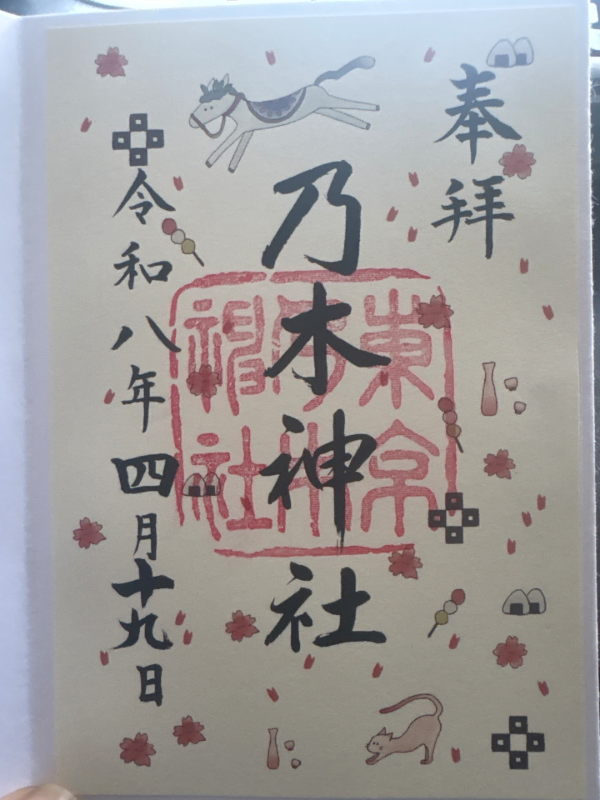 奉拝
乃木神社
東京
令和八年四月十九日